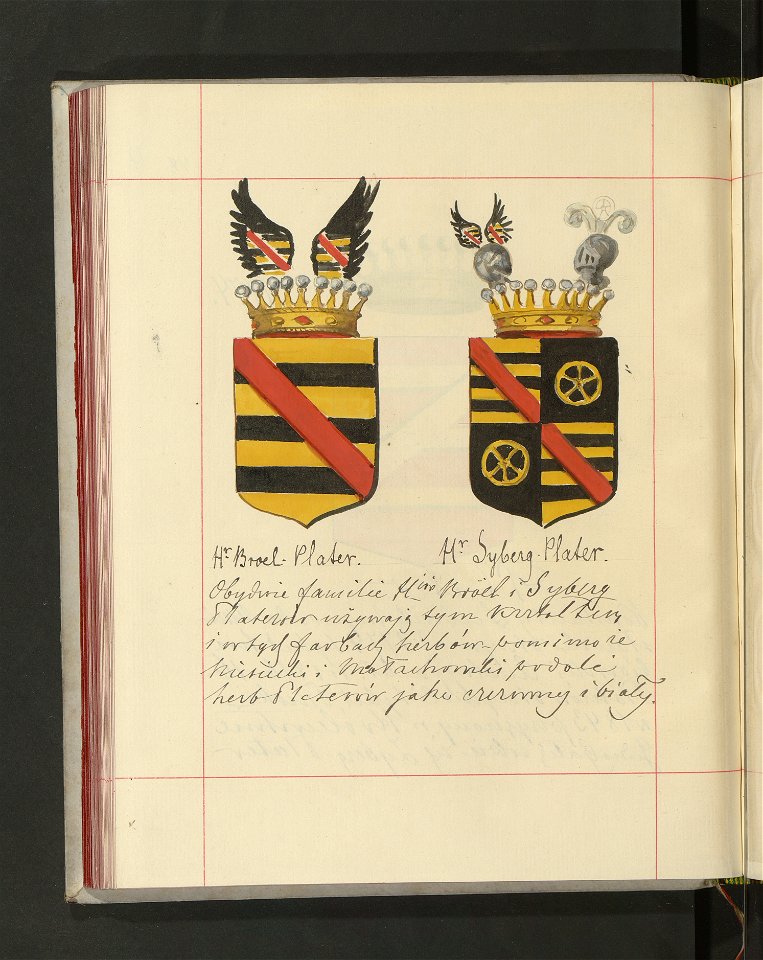 Hr Broel-Plater.
Hr Syberg-Plater.
Obydwie familie Hów Bröel i Syberg
Platerów używają tym kształtem
i w tych farbach herbów pomimo że
Niesiecki i Małachowski podali
herb Platerów jako czerwony i biały.